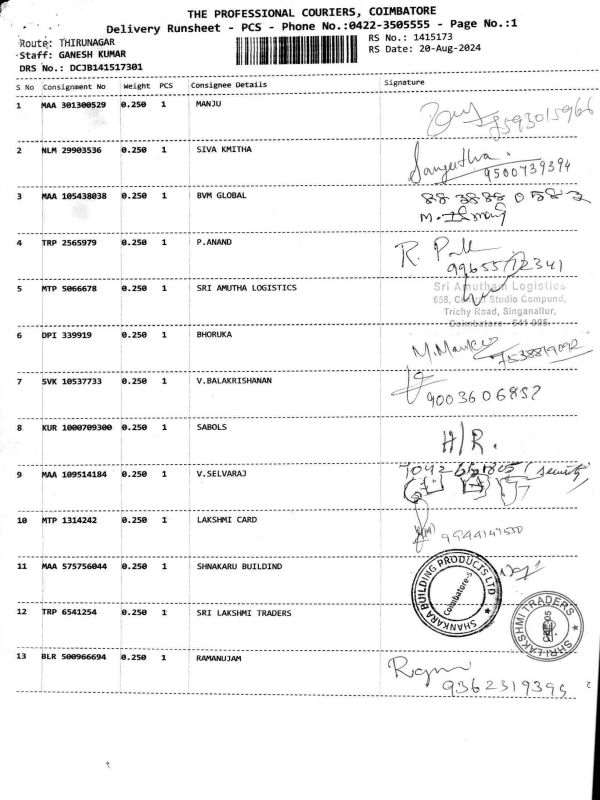 THE PROFESSIONAL COURIERS, COIMBATORE
Delivery Runsheet - PCS - Phone No.:0422-3505555 - Page No.:1
Route: THIRUNAGAR
Staff: GANESH KUMAR
DRS No.: DCJB141517301
RS No.: 1415173
RS Date: 20-Aug-2024
S No Consignment No Weight PCS Consignee Details Signature
1 MAA 301300529 0.250 1 MANJU
2 NLM 29903536 0.250 1 SIVA KMITHA Sangeetha.
9500739394
3 MAA 105438038 0.250 1 BVM GLOBAL
4 TRP 2565979 0.250 1 P.ANAND
9965572341
5 MTP 5066678 0.250 1 SRI AMUTHA LOGISTICS
Sri Amutham Logistics
658, Studio Compund,
Trichy Road, Singanallur,
Coimbatore - 641 005.
6 DPI 339919 0.250 1 BHORUKA
7538819092
7 SVK 10537733 0.250 1 V.BALAKRISHANAN
9003606852
8 KUR 1000709300 0.250 1 SABOLS H/R.
9 MAA 109514184 0.250 1 V.SELVARAJ (security)
10 MTP 1314242 0.250 1 LAKSHMI CARD
11 MAA 575756044 0.250 1 SHNAKARU BUILDIND
SHANKARA BUILDING PRODUCTS LTD
Coimbatore-5
12 TRP 6541254 0.250 1 SRI LAKSHMI TRADERS
SHRI LAKSHMI TRADERS
CBE-05
13 BLR 500966694 0.250 1 RAMANUJAM
9362319395